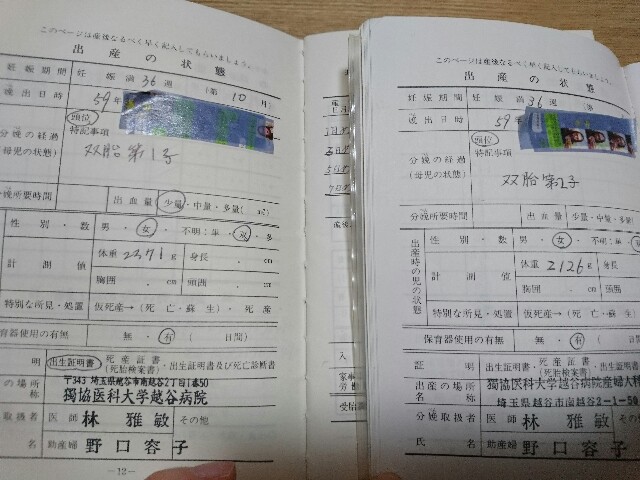 このページは産後なるべく早く記入してもらいましょう。
出産の状態
妊娠期間 妊娠満36週 (第10月)
娩出日時 59年
分娩の経過 (母児の状態) 頭位 特記事項
双胎第1子
分娩所要時間 出血量 少量・中量・多量(
性別・数 男・女・不明:単・双・多
計測値 体重2371g 身長 . cm
胸囲 . cm 頭囲 . cm
特別な所見・処置 仮死産→(死亡・蘇生)・死産
保育器使用の有無 無・有 ( 日間)
明 出生証明書・死産証書(死胎検案書)・出生証明書及び死亡診断書
〒343 埼玉県越谷市南越谷2丁目1番50
出産の場所 名称 獨協医科大学越谷病院
取扱者 医師 林雅敏 その他
名 助産婦 野口容子
—12—
このページは産後なるべく早く記入してもらいましょう。
出産の状態
妊娠期間 妊娠満36週
娩出日時 59年
分娩の経過 (母児の状態) 頭位 特記事項
双胎第2子
分娩所要時間 出血量 少量・中量・多
出産時の児の状態
性別・数 男・女・不明:単・
計測値 体重2126g 身長
胸囲 . cm 頭囲
特別な所見・処置 仮死産→(死亡・蘇生)・
保育器使用の有無 無・有 (
証明 出生証明書・死産証書(死胎検案書)・出生証明書及び死亡
出産の場所 名称 獨協医科大学越谷病院産婦人科
埼玉県越谷市南越谷2-1-50
分娩取扱者 医師 林雅敏 その他
氏名 助産婦 野口容子